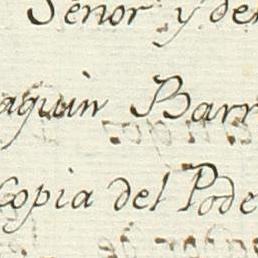 Señor y de
aquin Barr
Copia del Pode